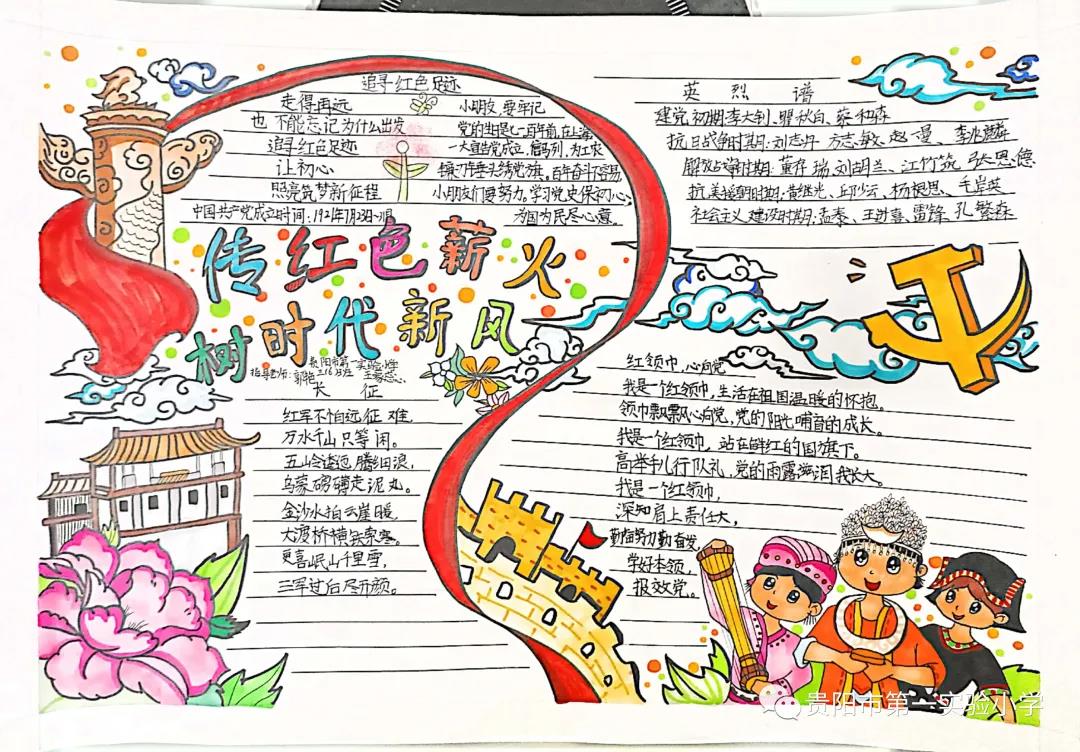 追寻红色足迹
走得再远
也不能忘记为什么出发
追寻红色足迹
让初心
照亮筑梦新征程
中国共产党成立时间:1921年7月23日
小朋友,要牢记
党的生日七一百年前,在上海
一大宣告党成立,偕马列,为工农
镰刀锤头绣党旗,百年奋斗
小朋友们要努力,学习党史保初心
为国为民尽心意。
英烈谱
建党初期:李大钊、瞿秋白、蔡和森
抗日战争时期:刘志丹、方志敏、赵一曼、李兆麟
解放战争时期:董存瑞、刘胡兰、江竹筠、张思德
抗美援朝时期:黄继光、邱少云、杨根思、毛岸英
社会主义建设时期:孟泰、王进喜、雷锋、孔繁森
传红色薪火
树时代新风
贵阳市第一实验小学
指导老师:郭艳
长征
红军不怕远征难,
万水千山只等闲。
五岭逶迤腾细浪,
乌蒙磅礴走泥丸。
金沙水拍云崖暖,
大渡桥横铁索寒。
更喜岷山千里雪,
三军过后尽开颜。
红领巾,心向党
我是一个红领巾,生活在祖国温暖的怀抱。
领巾飘飘心向党,党的阳光哺育的成长。
我是一个红领巾,站在鲜红的国旗下。
高举手儿行队礼,党的雨露滋润我长大
我是一个红领巾,
深知肩上责任大,
努力勤奋发,
学好本领,
报效党。
贵阳市第一实验小学